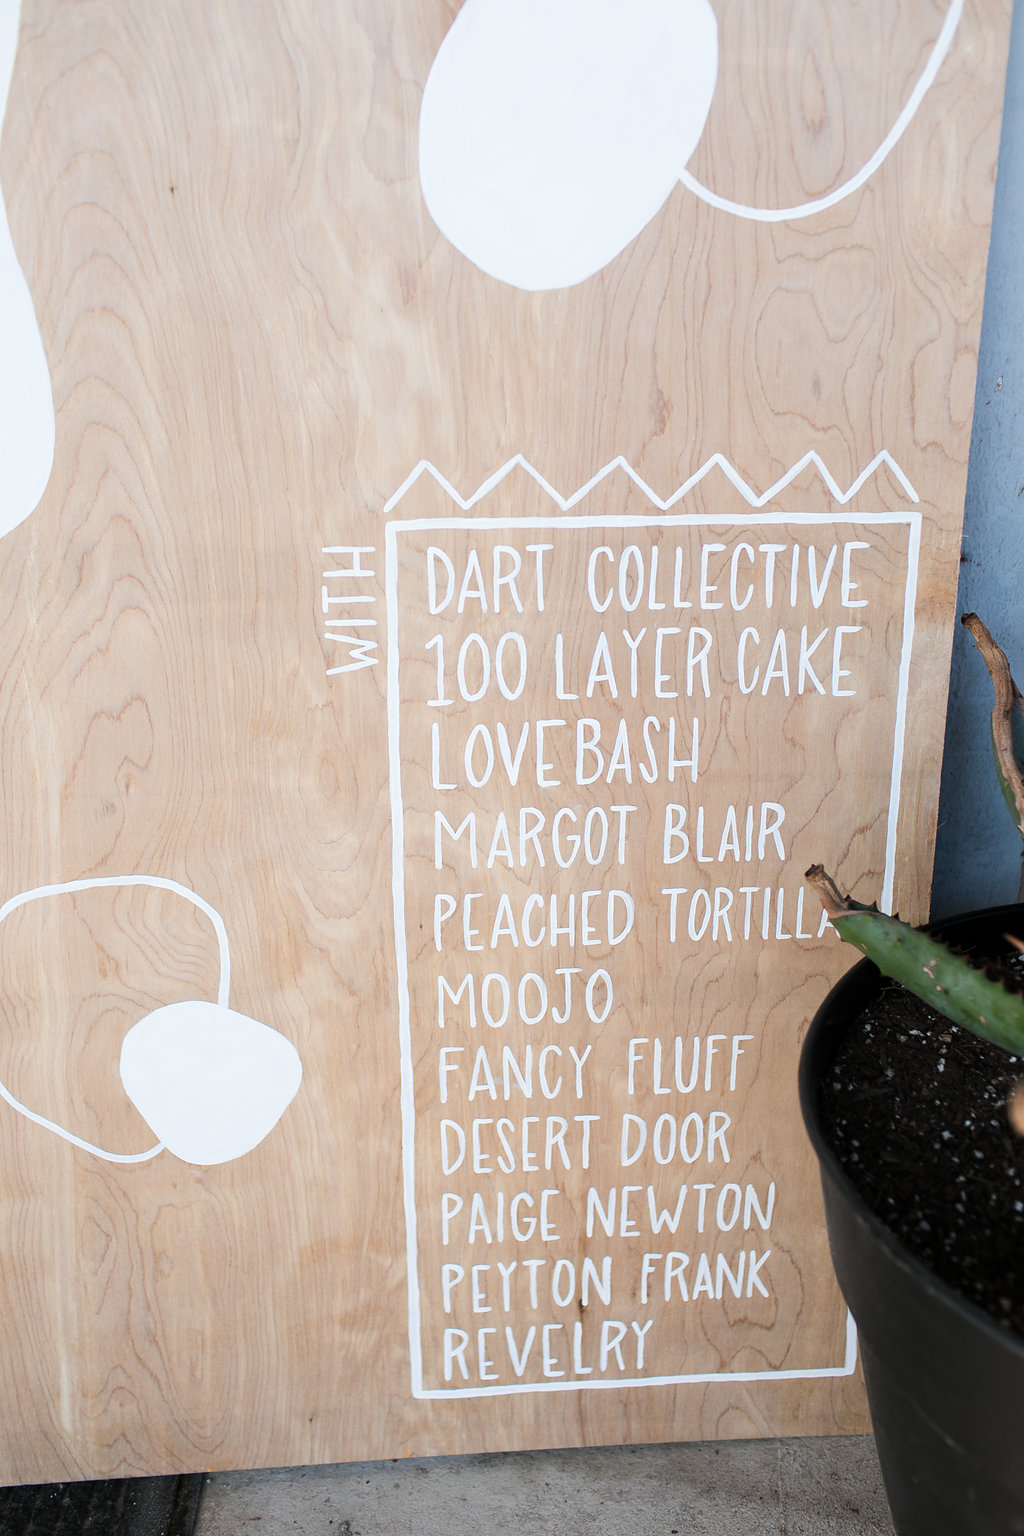 WITH
DART COLLECTIVE
100 LAYER CAKE
LOVEBASH
MARGOT BLAIR
PEACHED TORTILLA
MOOJO
FANCY FLUFF
DESERT DOOR
PAIGE NEWTON
PEYTON FRANK
REVELRY